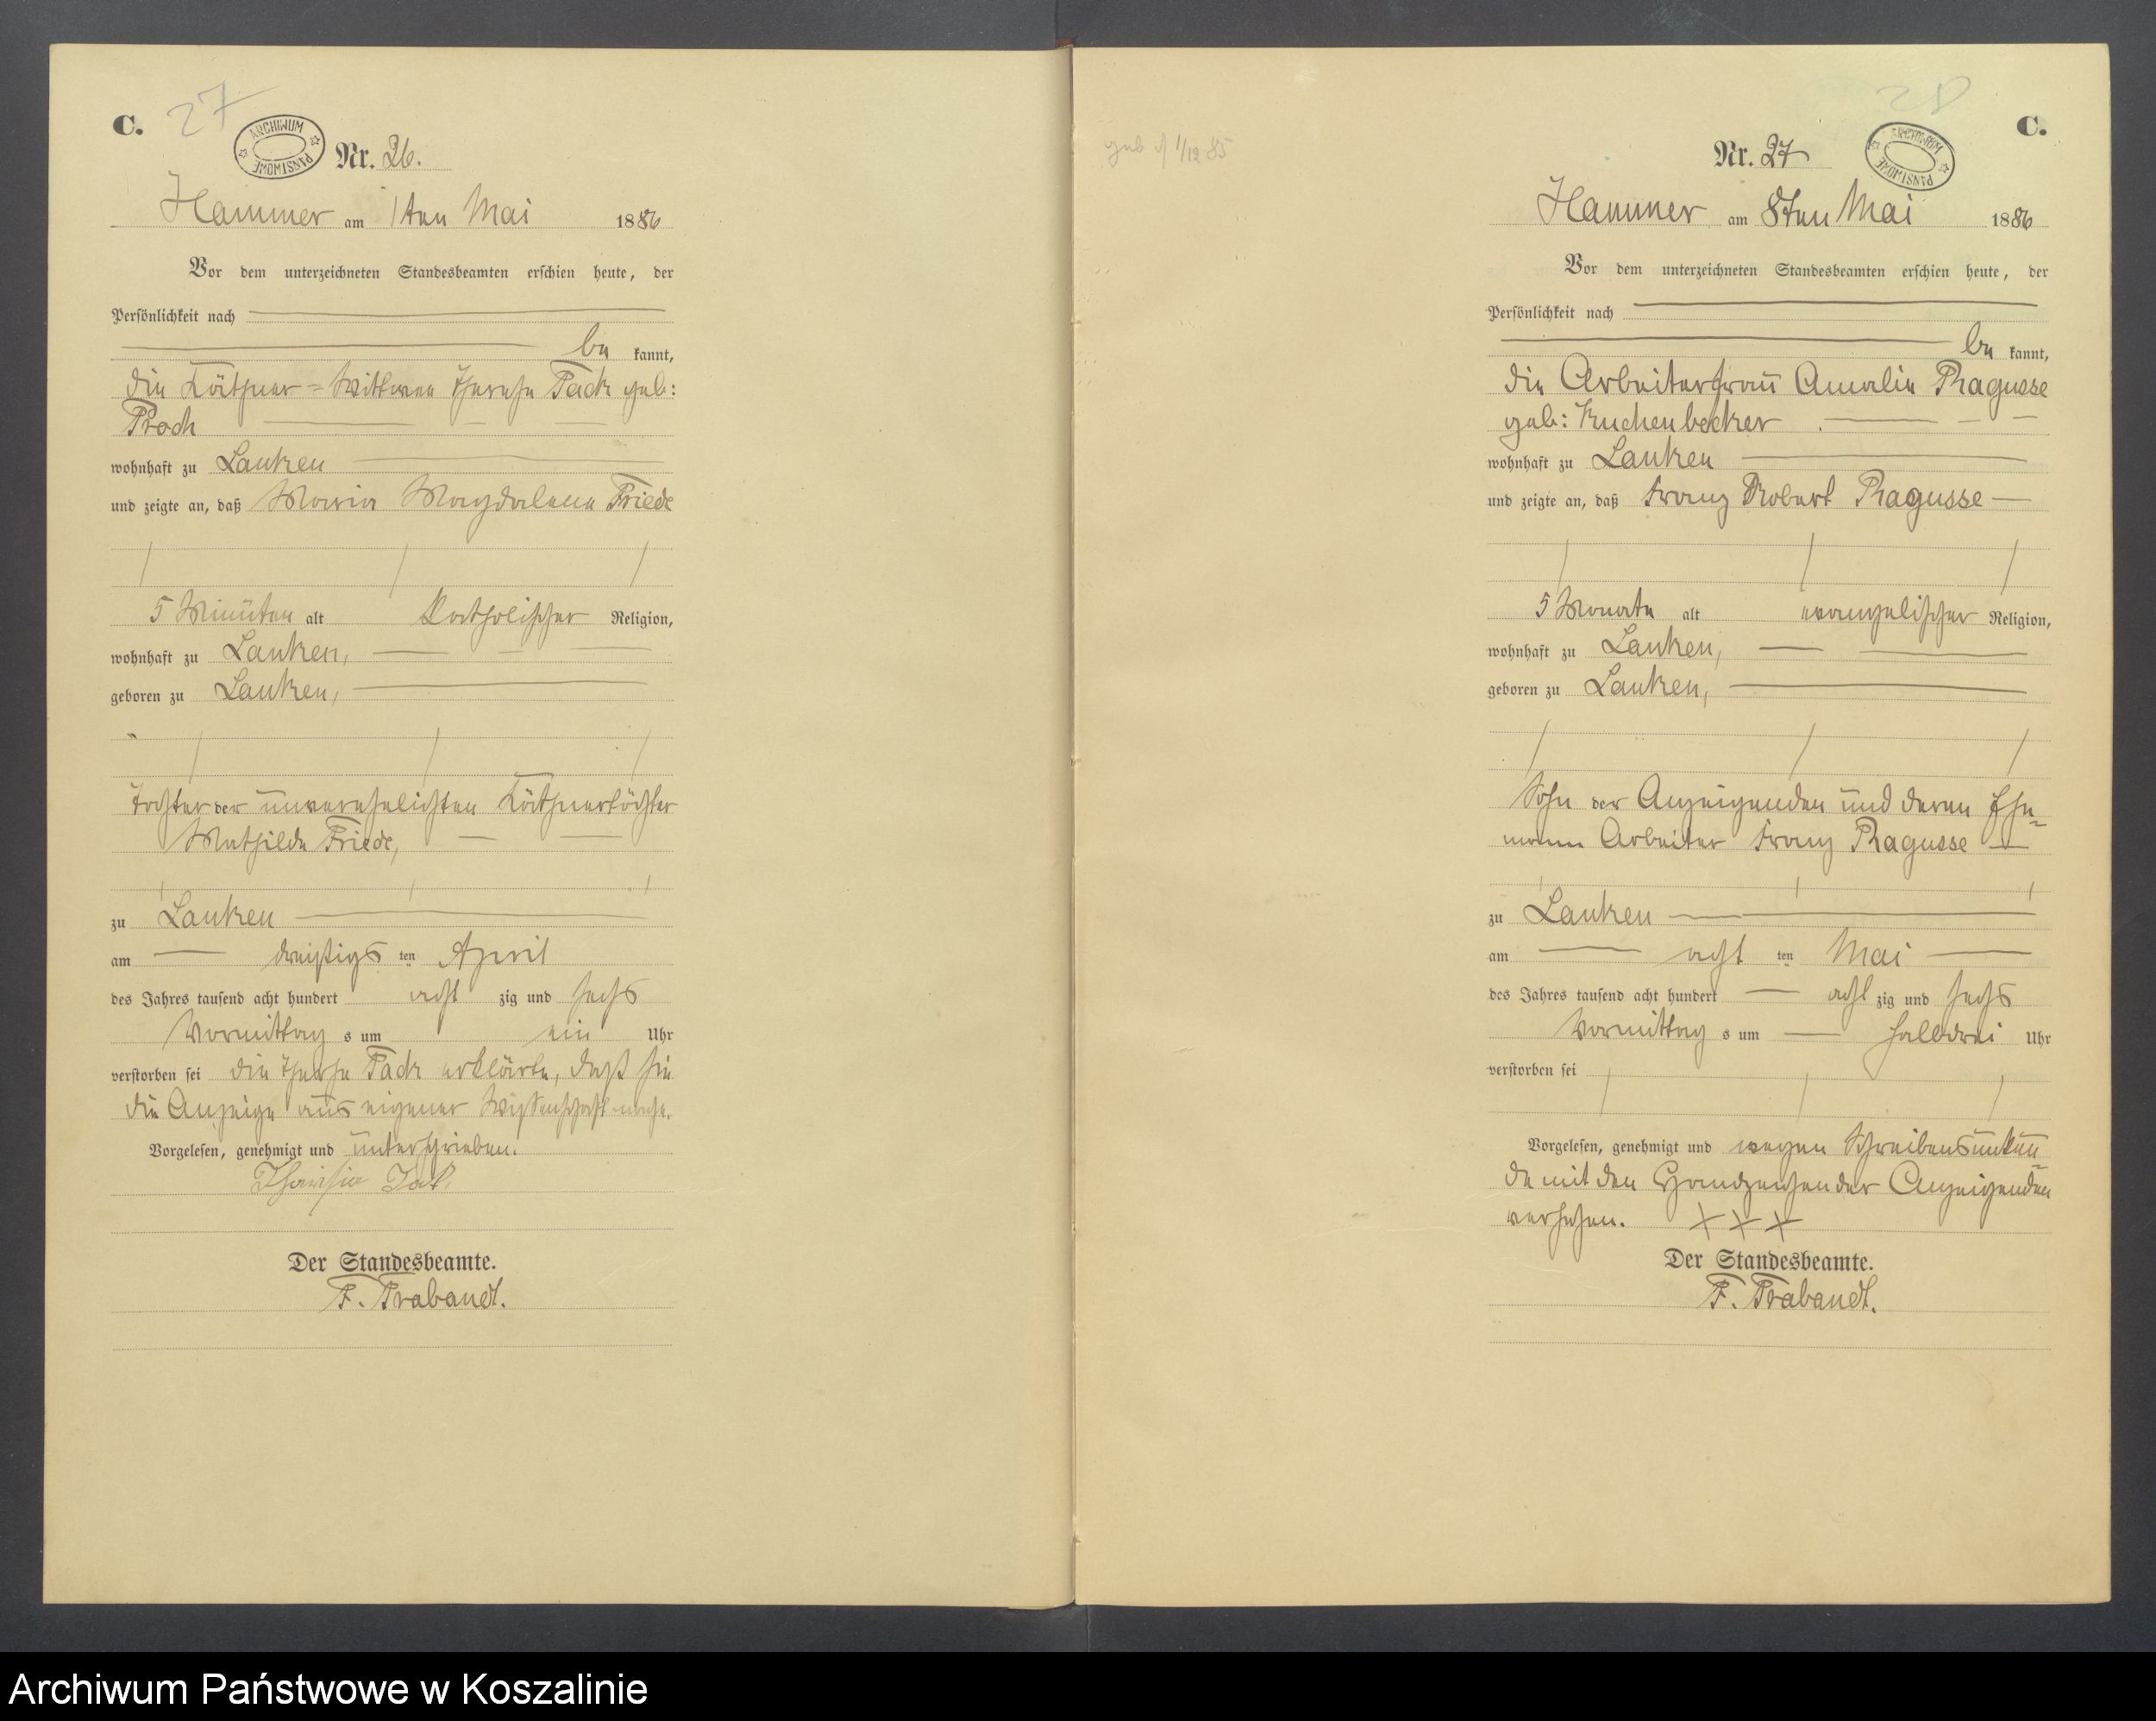 C.
27
ARCHIWUM PAŃSTWOWE
Nr. 26.
Hammer am 1ten Mai 1886
Vor dem unterzeichneten Standesbeamten erschien heute, der
Persönlichkeit nach
be kannt,
die Käthner=Wittwee Therese Pack geb:
Proch
wohnhaft zu Lanken
und zeigte an, daß Maria Magdalena Friede
5 Minüten alt Katholischer Religion,
wohnhaft zu Lanken,
geboren zu Lanken,
Tochter der ünverehelichten Käthnertöchter
Mathilde Friede,
zu Lanken
am dreißigs ten April
des Jahres tausend acht hundert acht zig und sechs
Vormittag s um ein Uhr
verstorben sei die Therese Pack erklärte, daß sie
die Anzeige aüs eigener Wissenschaft mache.
Vorgelesen, genehmigt und ünterschrieben.
Der Standesbeamte.
F. Trabandt.
geb 1/12 85
28
C.
Nr. 27
ARCHIWUM PAŃSTWOWE
Hammer am 8ten Mai 1886
Vor dem unterzeichneten Standesbeamten erschien heute, der
Persönlichkeit nach
be kannt,
die Arbeiterfraü Amalie Ragusse
geb: Kuchenbecker
wohnhaft zu Lanken
und zeigte an, daß Franz Robert Ragusse
5 Monate alt evangelischer Religion,
wohnhaft zu Lanken,
geboren zu Lanken,
Sohn der Anzeigenden und deren Ehe=
mann Arbeiter Franz Ragusse
zu Lanken
am acht ten Mai
des Jahres tausend acht hundert acht zig und sechs
Vormittag s um halbdrei Uhr
verstorben sei
Vorgelesen, genehmigt und wegen Schreibensünkün=
de mit den Handzeichen der Anzeigenden
versehen. + + +
Der Standesbeamte.
F. Trabandt.
Archiwum Państwowe w Koszalinie